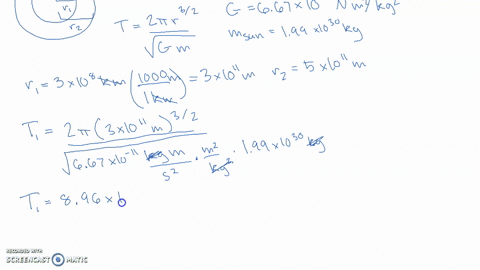 r₁
r₂
T = 2πr^(3/2) / √(Gm)
G = 6.67×10 N m²/kg²
m_sun = 1.99×10³⁰ kg
r₁ = 3×10⁸ km (1000m / 1km) = 3×10¹¹ m r₂ = 5×10¹¹ m
T₁ = 2π(3×10¹¹ m)^(3/2) / √(6.67×10⁻¹¹ kg m/s² · m²/kg² · 1.99×10³⁰ kg)
T₁ = 8.96×1
RECORDED WITH
SCREENCAST MATIC